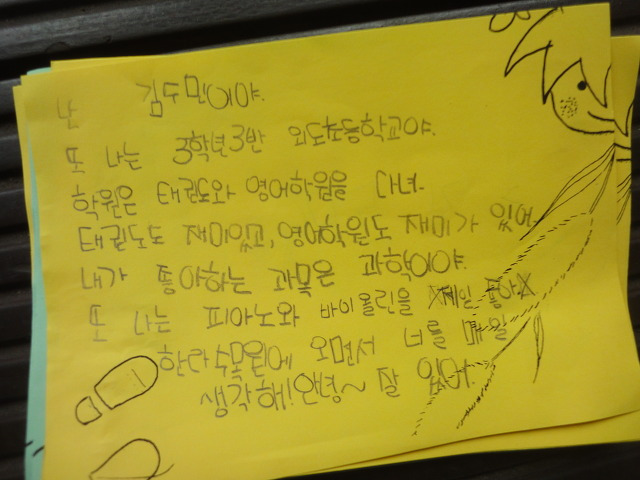 난 김두민이야.
또 나는 3학년3반 외도초등학교야.
학원은 태권도와 영어학원을 다녀.
태권도도 재미있고, 영어학원도 재미가 있어.
내가 좋아하는 과목은 과학이야.
또 나는 피아노와 바이올린을 제일 좋아
한라수목원에 오면서 너를 매일
생각해! 안녕~ 잘 있어.